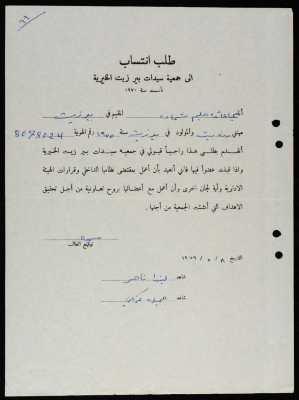 (٩٦)
طلب انتساب
الى جمعية سيدات بير زيت الخيرية
تأسست سنة ١٩٧٠
أنا المقيم في بيرزيت
مهنتي والمولود في بيرزيت سنة ١٩٥٥ رقم الهوية 8078024
أتقدم بطلبي هذا راجياً قبولي في جمعية سيدات بير زيت الخيرية
واذا قبلت عضواً فيها فاني أتعهد بأن أعمل بمقتضى نظامها الداخلي وقرارات الهيئة
الادارية وأية لجان اخرى وأن أعمل مع أعضائها بروح تعاونية من أجل تحقيق
الاهداف التي أنشئت الجمعية من أجلها .
توقيع الطالب
التاريخ ٨ / ٥ / ١٩٧٩
شاهد ناصر
شاهد